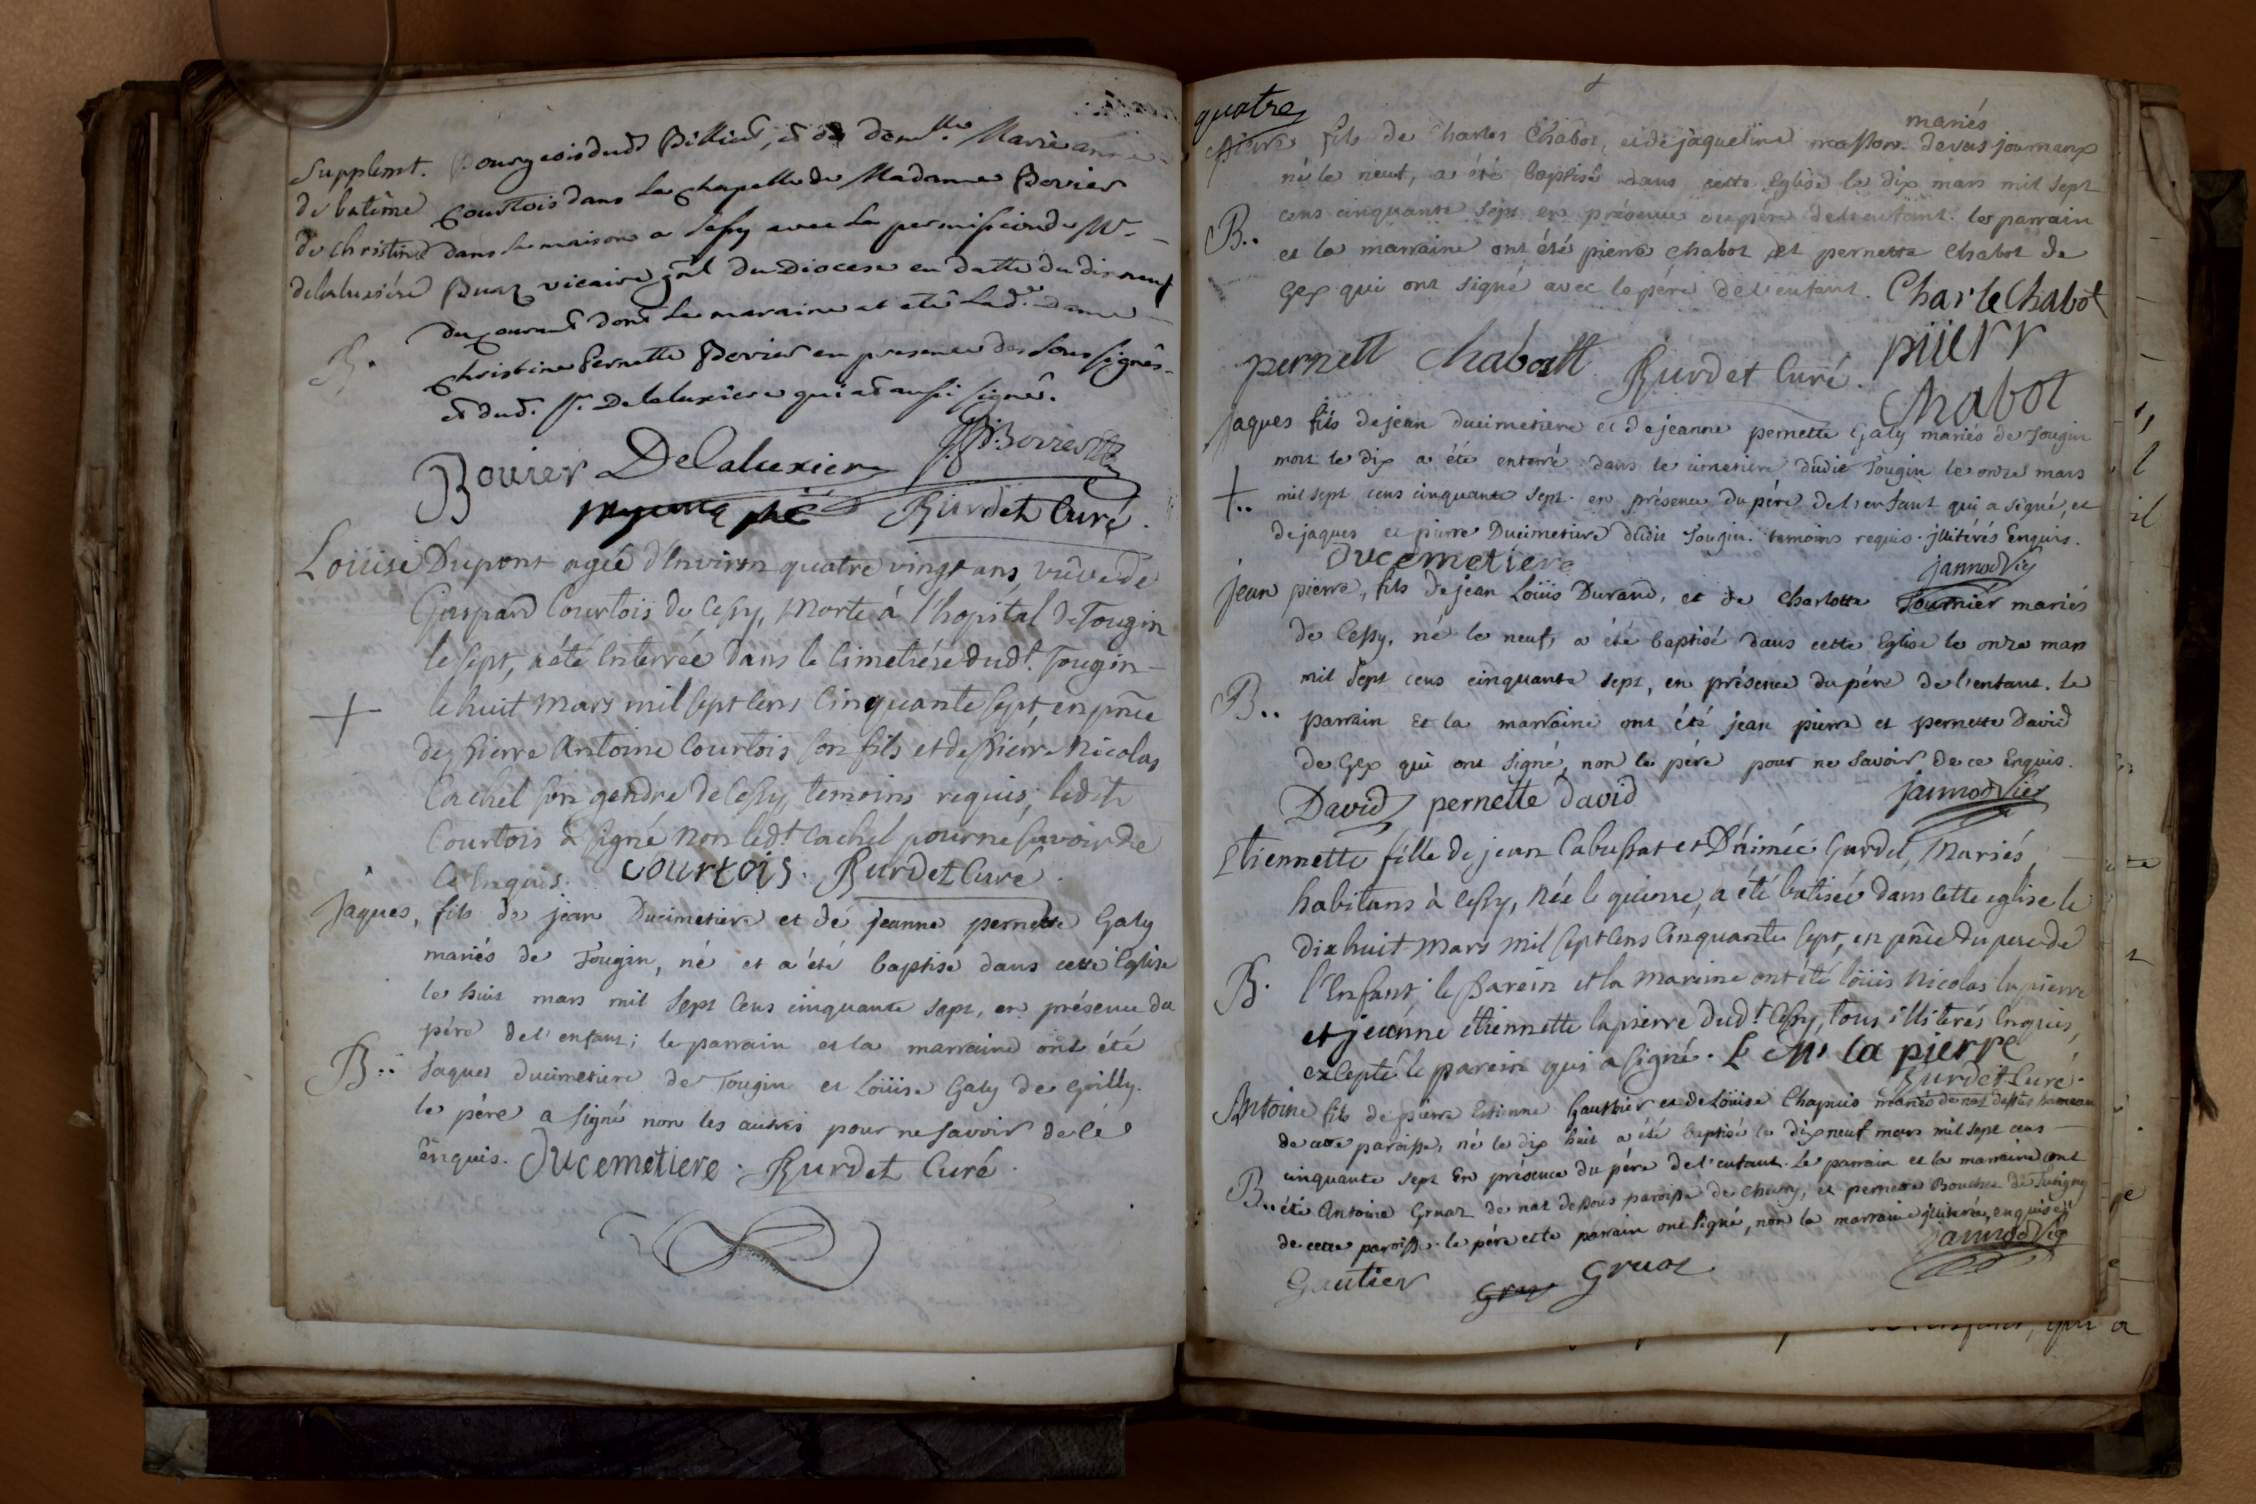 Supplemt. Bourgeois dudt Billieu, et de demlle Marie anne
de batême Courtois dans la chapelle de Madame Bovier
de christine dans sa maison a Cessy avec la permission de Mr
delaluxiére Buaz vicaire gñl du Diocese en datte du dixneuf
du courant dont la maraine at eté lade dame
B. christine Pernette Bovier en presence des soussignés
et dud. Sr. Delaluxiere qui at aussi signé.
Bovier Delaluxiere
Burdet Curé.
Loüise Dupont agée d'Environ quatre vingt ans, vüve de
Gaspard Courtois de Cessy, Morte à l'hopital de Tougin
le sept, a été Enterrée dans le Cimetiére dudt. Tougin
+ le huit Mars mil sept cens Cinquante sept, en pnce
de pierre Antoine Courtois son fils et de pierre Nicolas
Cachel son gendre de Cessy, temoins requis; ledit
Courtois a signé non ledt. Cachel pour ne savoir de
ce Enquis. courtois. Burdet Curé.
Jaques, fils de jean Ducimetiere et de jeanne pernette Galy
mariés de Tougin, né et a été baptisé dans cette Eglise
le huit mars mil sept Cens cinquante sept, en présence du
pére de l'enfant; le parrain et la marraine ont été
B.. Jaques ducimetiere de Tougin et Loüise Galy de Grilly.
le pére a signé non les autres pour ne savoir de cé
enquis. Ducemetiere. Burdet Curé.
quatre
mariés
pierre fils de Charles Chabot, et de jaqueline masson de vas journeaux
né le neuf, a été baptisé dans cette Eglise le dix mars mil sept
cens cinquante sept en présence du pére de l'enfant. le parrain
B.. et la marraine ont été pierre chabot et pernette chabot de
Gex qui ont signé avec le pére de l'enfant. Charle Chabot
pernett chabott Burdet Curé. piierr
chabot
Jaques fils de jean ducimetiere et de jeanne pernette Galy mariés de Tougin
mort le dix a été enterré dans le cimetiere dudit Tougin le onze mars
+.. mil sept cens cinquante sept. en présence du pére de l'enfant qui a signé, et
de jaques et pierre Ducimetiere dudit Tougin. temoins requis. jllitérés Enquis.
Ducemetiere jannod Vic
jean pierre, fils de jean Loüis Durand, et de Charlotte Fournier mariés
de Cessy, né le neuf, a été baptisé dans cette Eglise le onze mars
mil sept cens cinquante sept, en présence du pére de l'enfant. le
B.. parrain et la marraine ont été jean pierre et pernette David
de Gex qui ont signé, non le pére pour ne savoir de ce Enquis.
David pernette david jannod Vic
Etiennette fille de jean Cabussat et D'Aimée Gardel, Mariés,
habitans à Cessy, Née le quinze, a été batisée dans cette eglise le
dix huit Mars Mil sept Cens Cinquante sept, en pnce du pere de
B. l'Enfant; le parein et la Mareine ont été loüis Nicolas lapierre
et jeanne étiennette lapierre dudt. Cessy, tous illiterés Enquis,
excepté le parein qui a signé. L N la pierre
Burdet Curé.
Antoine fils de pierre Etienne Gauthier et de Loüise Chapuis mariés de naz dessus hameau
de cette paroisse, né le dix huit a été baptisé le dixneuf mars mil sept cens
cinquante sept En présence du pére de l'enfant. Le parrain et la marraine ont
B.. été Antoine Gruaz de naz dessous paroisse de Chevry, et pernette Bouchet de Tutigny
de cette paroisse. le pére et le parrain ont signé, non la marraine jllitérée, enquise.
jannod Vic
Gautier Gruaz Gruaz